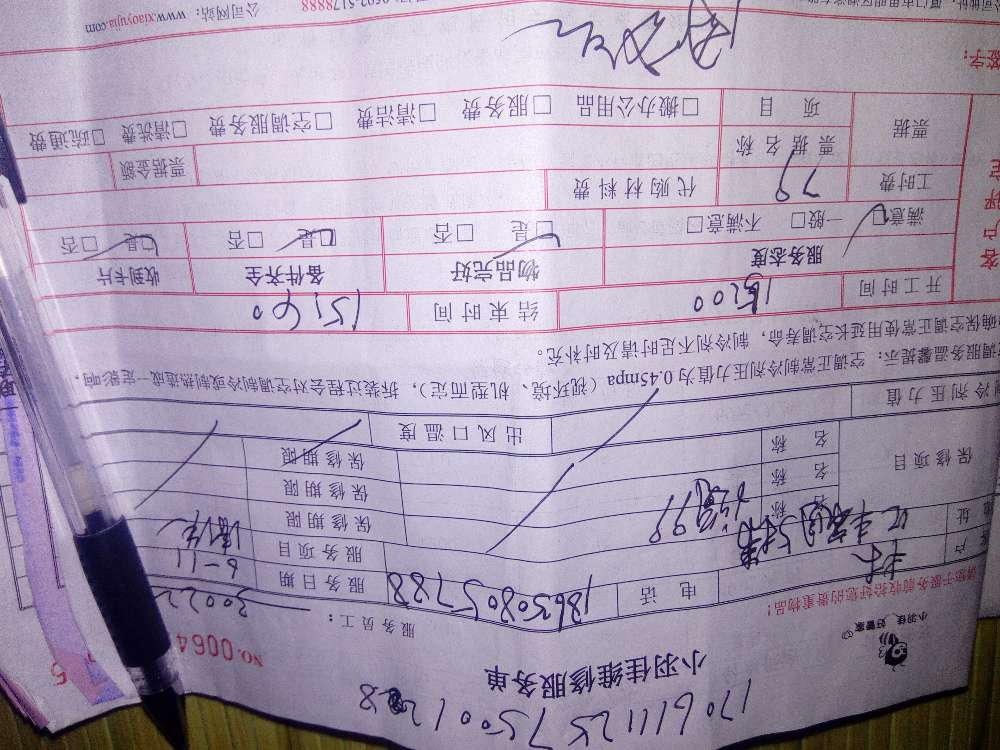 1706112575001228
小羽佳维修服务单
小羽佳 好管家
NO.0064
服务员工: 30022
电话 18650805788 服务日期 6-11
服务项目
名称 保修期限
保修项目 名称 保修期限
名称 保修期限
冷剂压力值 出风口温度
调服务温馨提示: 空调正常制冷剂压力值为0.45mpa(视环境、机型而定),拆装过程会对空调制冷或制热造成一定影响,
确保空调正常使用延长空调寿命,制冷剂不足时请及时补充。
开工时间 15:00 结束时间 15:40
服务态度 物品完好 备件齐全 收到卡片
满意□ 一般□ 不满意□ □是 □否 □是 □否 □是 □否
工时费 79 代购材料费
票据 票据名称 票据金额
项目 □搬办公用品 □服务费 □清洁费 □空调服务费 □清洗费 □疏通费
签字:
公司网站: www.xiaoyujia.com